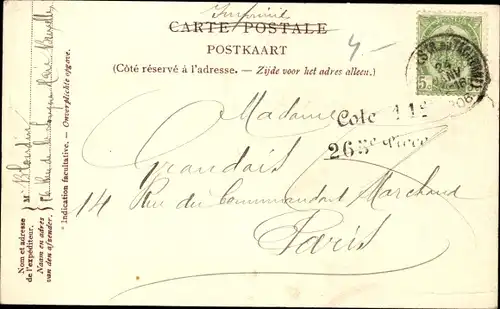 Imprimé
CARTE POSTALE
POSTKAART
(Côté réservé à l'adresse. – Zijde voor het adres alleen.)
4-
5c
24
08
Madame
Cote 11
265e Pièce
Grandais
14 Rue du Commandant Marchand
Paris
* Indication facultative. — Onverplichte opgave.
Nom et adresse
de l'expéditeur.
Naam en adres
van den afzender.
M
Rue de la